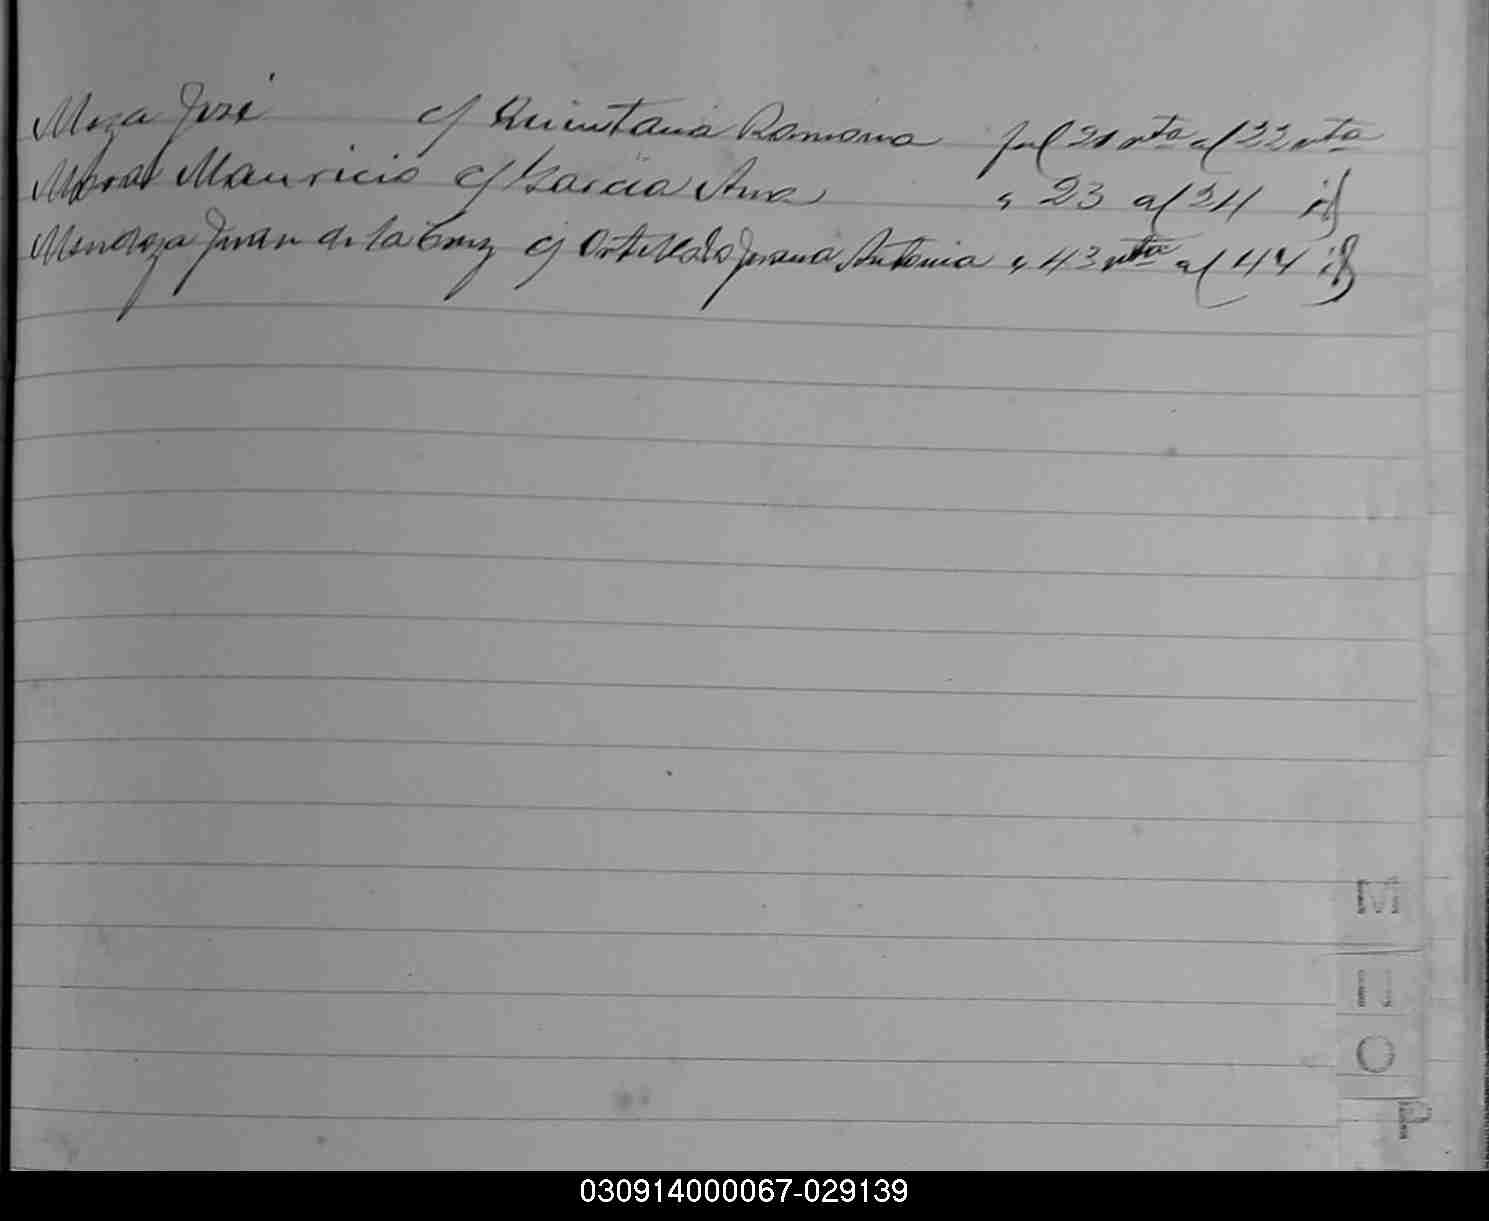 Meza José c/ Quintana Ramona fol 21 vta al 22 vta
Moral Mauricio c/ Garcia Ana " 23 al 24 id
Mendoza Juan de la Cruz c/ Juana Antonia " 43 vta al 44 id
M
N
O
P
030914000067-029139